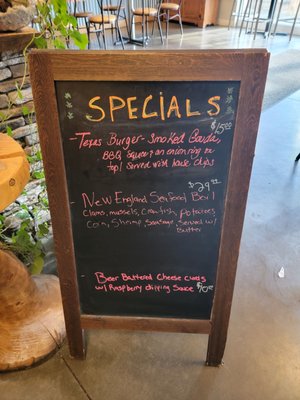 SPECIALS
$15.00
- Texas Burger - Smoked Gouda,
BBQ Sauce & an onion ring on
top! Served with house chips
$29.99
- New England Seafood Boil
Clams, mussels, Crawfish, potatoes
Corn, Shrimp, Sausage, Served w/
Butter
- Beer Battered Cheese curds
w/ Raspberry dipping Sauce